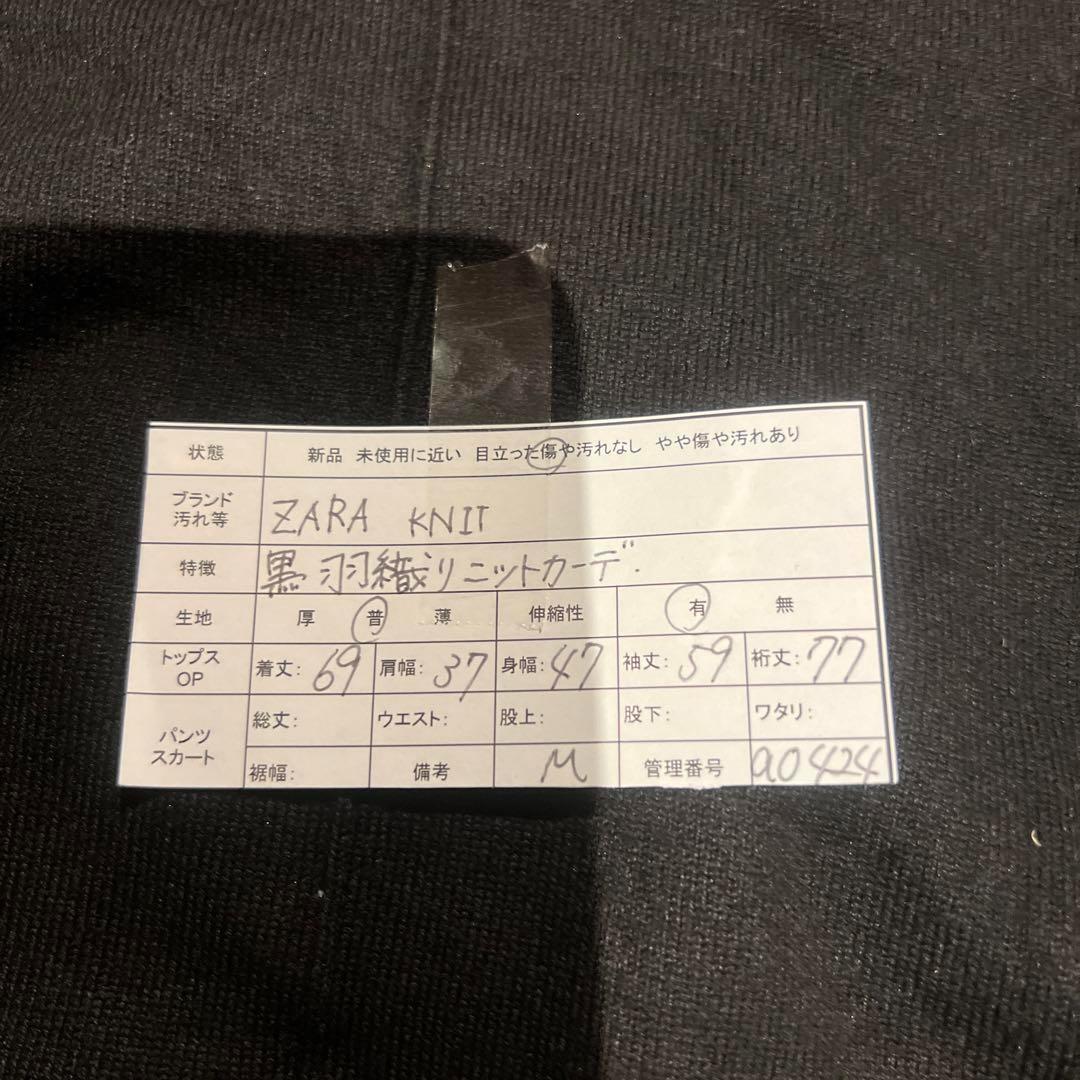 状態 新品 未使用に近い 目立った傷や汚れなし やや傷や汚れあり
ブランド
汚れ等 ZARA KNIT
特徴 黒 羽織りニットカーデ.
生地 厚 普 薄 伸縮性 有 無
トップス
OP 着丈: 69 肩幅: 37 身幅: 47 袖丈: 59 裄丈: 77
パンツ
スカート 総丈: ウエスト: 股上: 股下: ワタリ:
裾幅: 備考 M 管理番号 a0424